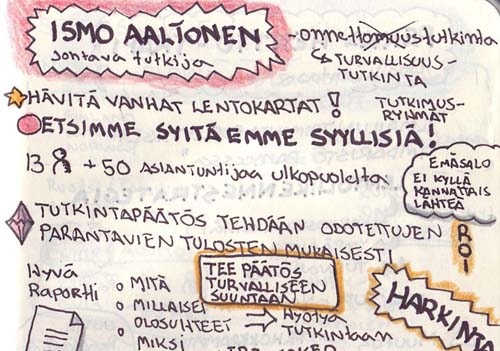 ISMO AALTONEN
johtava tutkija
-onnettomuustutkinta
TURVALLISUUS-
TUTKINTA
HÄVITÄ VANHAT LENTOKARTAT!
TUTKIMUS-
RYHMÄT
ETSIMME SYITÄ EMME SYYLLISIÄ!
13 + 50 ASIANTUNTIJAA ULKOPUOLELTA
EMÄSALO
EI KYLLÄ
KANNATTAIS
LÄHTEÄ
TUTKINTAPÄÄTÖS TEHDÄÄN ODOTETTUJEN
PARANTAVIEN TULOSTEN MUKAISESTI
ROI
HYVÄ
RAPORTTI
MITÄ
MILLAISET
OLOSUHTEET
MIKSI
TEE PÄÄTÖS
TURVALLISEEN
SUUNTAAN
HYÖTYÄ
TUTKINTAAN
HARKINTA